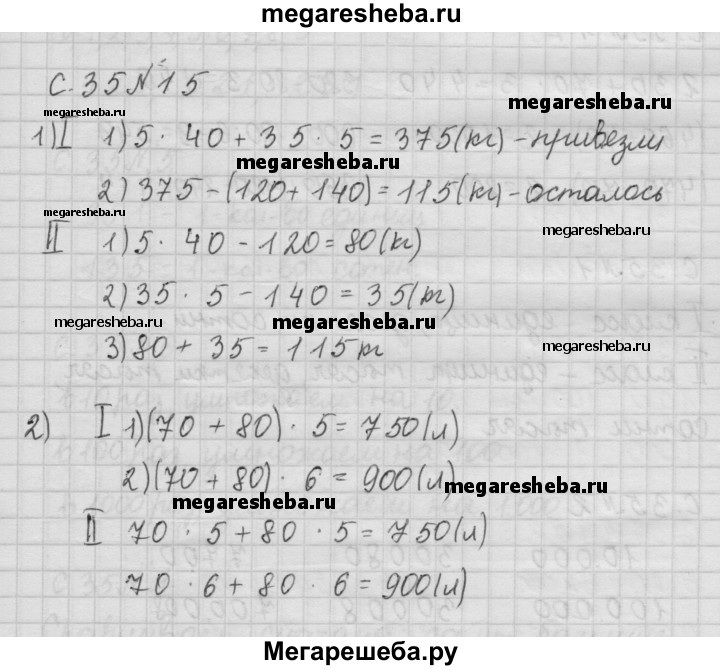 megaresheba.ru
С. 35 № 15
megaresheba.ru
megaresheba.ru
1) I 1) 5 · 40 + 35 · 5 = 375 (кг) - привезли
megaresheba.ru
2) 375 - (120 + 140) = 115 (кг) - осталось
megaresheba.ru
II 1) 5 · 40 - 120 = 80 (кг)
megaresheba.ru
megaresheba.ru
2) 35 · 5 - 140 = 35 (кг)
megaresheba.ru
megaresheba.ru
3) 80 + 35 = 115 кг
megaresheba.ru
2) I 1) (70 + 80) · 5 = 750 (л)
2) (70 + 80) · 6 = 900 (л)
megaresheba.ru
megaresheba.ru
II 70 · 5 + 80 · 5 = 750 (л)
megaresheba.ru
megaresheba.ru
70 · 6 + 80 · 6 = 900 (л)
megaresheba.ru
megaresheba.ru
Мегарешеба.ру